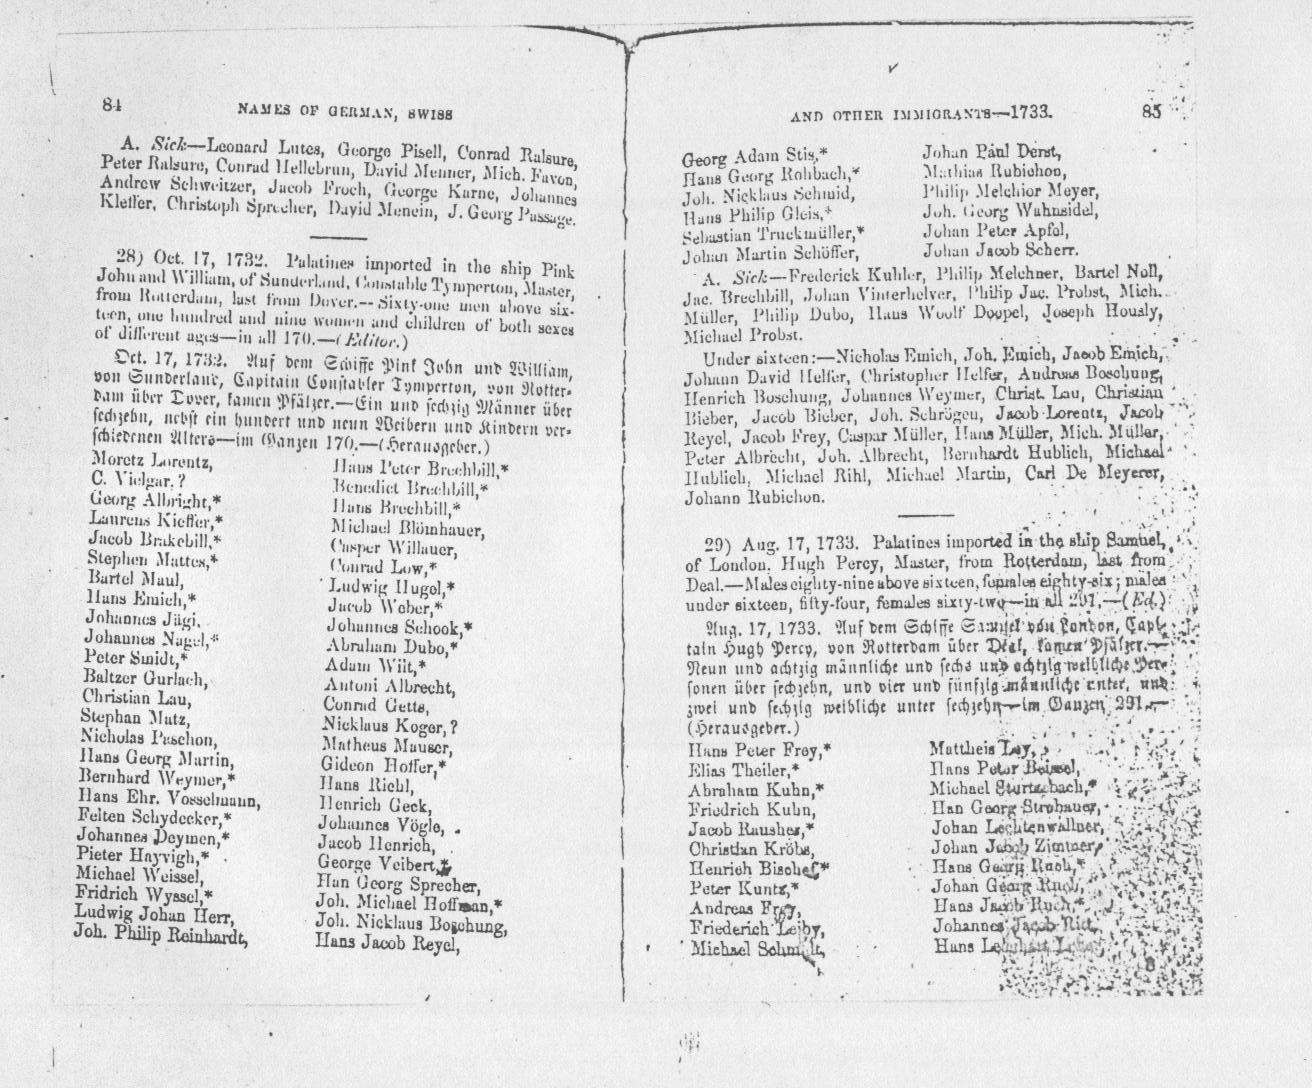 84
NAMES OF GERMAN, SWISS
A. Sick—Leonard Lutes, George Pisell, Conrad Ralsure,
Peter Ralsure, Conrad Hellebrun, David Menner, Mich. Favon,
Andrew Schweitzer, Jacob Froch, George Kurne, Johannes
Kleffer, Christoph Sprecher, David Menein, J. Georg Passage.
28) Oct. 17, 1732. Palatines imported in the ship Pink
John and William, of Sunderland, Constable Tymperton, Master,
from Rotterdam, last from Dover.--Sixty-one men above six-
teen, one hundred and nine women and children of both sexes
of different ages—in all 170.—(Editor.)
Oct. 17, 1732. Auf dem Schiffe Pink John und William,
von Sunderland, Capitain Constabler Tymperton, von Rotter-
dam über Dover, kamen Pfälzer.—Ein und sechzig Männer über
sechzehn, nebst ein hundert und neun Weibern und Kindern ver-
schiedenen Alters—im Ganzen 170.—(Herausgeber.)
Moretz Lorentz,
C. Vielgar, ?
Georg Albright,*
Laurens Kieffer,*
Jacob Brakebill,*
Stephen Mattes,*
Bartel Maul,
Hans Emich,*
Johannes Jügi,
Johannes Nagel,*
Peter Smidt,*
Baltzer Gurlach,
Christian Lau,
Stephan Matz,
Nicholas Paschon,
Hans Georg Martin,
Bernhard Weymer,*
Hans Ehr. Vosselmann,
Felten Schydecker,*
Johannes Deymen,*
Pieter Hayvigh,*
Michael Weissel,
Fridrich Wyssel,*
Ludwig Johan Herr,
Joh. Philip Reinhardt,
Hans Peter Brechbill,*
Benedict Brechbill,*
Hans Brechbill,*
Michael Blömhauer,
Casper Willauer,
Conrad Low,*
Ludwig Hugel,*
Jacob Weber,*
Johannes Schook,*
Abraham Dubo,*
Adam Wilt,*
Antoni Albrecht,
Conrad Getts,
Nicklaus Koger, ?
Matheus Mauser,
Gideon Hoffer,*
Hans Riehl,
Henrich Geck,
Johannes Vögle,
Jacob Henrich,
George Veibert,*
Han Georg Sprecher,
Joh. Michael Hoffman,*
Joh. Nicklaus Boschung,
Hans Jacob Reyel,
AND OTHER IMMIGRANTS—1733.
85
Georg Adam Stis,*
Hans Georg Rohbach,*
Joh. Nicklaus Schmid,
Hans Philip Gleis,*
Sebastian Truckmüller,*
Johan Martin Schöffer,
Johan Paul Derst,
Mathias Rubichon,
Philip Melchior Meyer,
Joh. Georg Wahnsidel,
Johan Peter Apfel,
Johan Jacob Scherr.
A. Sick—Frederick Kuhler, Philip Melchner, Bartel Noll,
Jac. Brechbill, Johan Vinterhelver, Philip Jac. Probst, Mich.
Müller, Philip Dubo, Haus Woolf Doppel, Joseph Hously,
Michael Probst.
Under sixteen:—Nicholas Emich, Joh. Emich, Jacob Emich,
Johann David Helfer, Christopher Helfer, Andreas Boschung,
Henrich Boschung, Johannes Weymer, Christ. Lau, Christian
Bieber, Jacob Bieber, Joh. Schrögen, Jacob Lorentz, Jacob
Reyel, Jacob Frey, Caspar Müller, Hans Müller, Mich. Müller,
Peter Albrecht, Joh. Albrecht, Bernhardt Hublich, Michael
Hublich, Michael Rihl, Michael Martin, Carl De Meyerer,
Johann Rubichon.
29) Aug. 17, 1733. Palatines imported in the ship Samuel,
of London, Hugh Percy, Master, from Rotterdam, last from
Deal.—Males eighty-nine above sixteen, females eighty-six; males
under sixteen, fifty-four, females sixty-two—in all 291.—(Ed.)
Aug. 17, 1733. Auf dem Schiffe Samuel von London, Capi-
tain Hugh Percy, von Rotterdam über Deal, kamen Pfälzer.—
Neun und achtzig männliche und sechs und achtzig weibliche Per-
sonen über sechzehn, und vier und fünfzig männliche unter, und
zwei und sechzig weibliche unter sechzehn—im Ganzen 291.—
(Herausgeber.)
Hans Peter Frey,*
Elias Theiler,*
Abraham Kuhn,*
Friedrich Kuhn,
Jacob Rausher,*
Christian Kröbs,
Henrich Bischof*
Peter Kuntz,*
Andreas Frey,
Friederich Leiby,
Michael Schmidt,
Mattheis Ley,
Hans Peter Beissel,
Michael Sturtzebach,*
Han Georg Strohauer,
Johan Lechtenwallner,
Johan Jacob Zimmer,
Hans Georg Ruch,*
Johan Georg Ruch,
Hans Jacob Ruch,*
Johannes Jacob Rict,
Hans